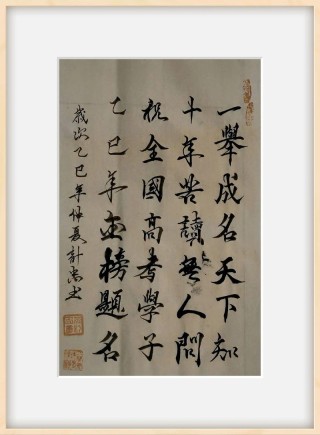 一舉成名天下知
斗年苦讀無人問
祝全國高考學子
乙巳年金榜題名
歲次乙巳年仲夏